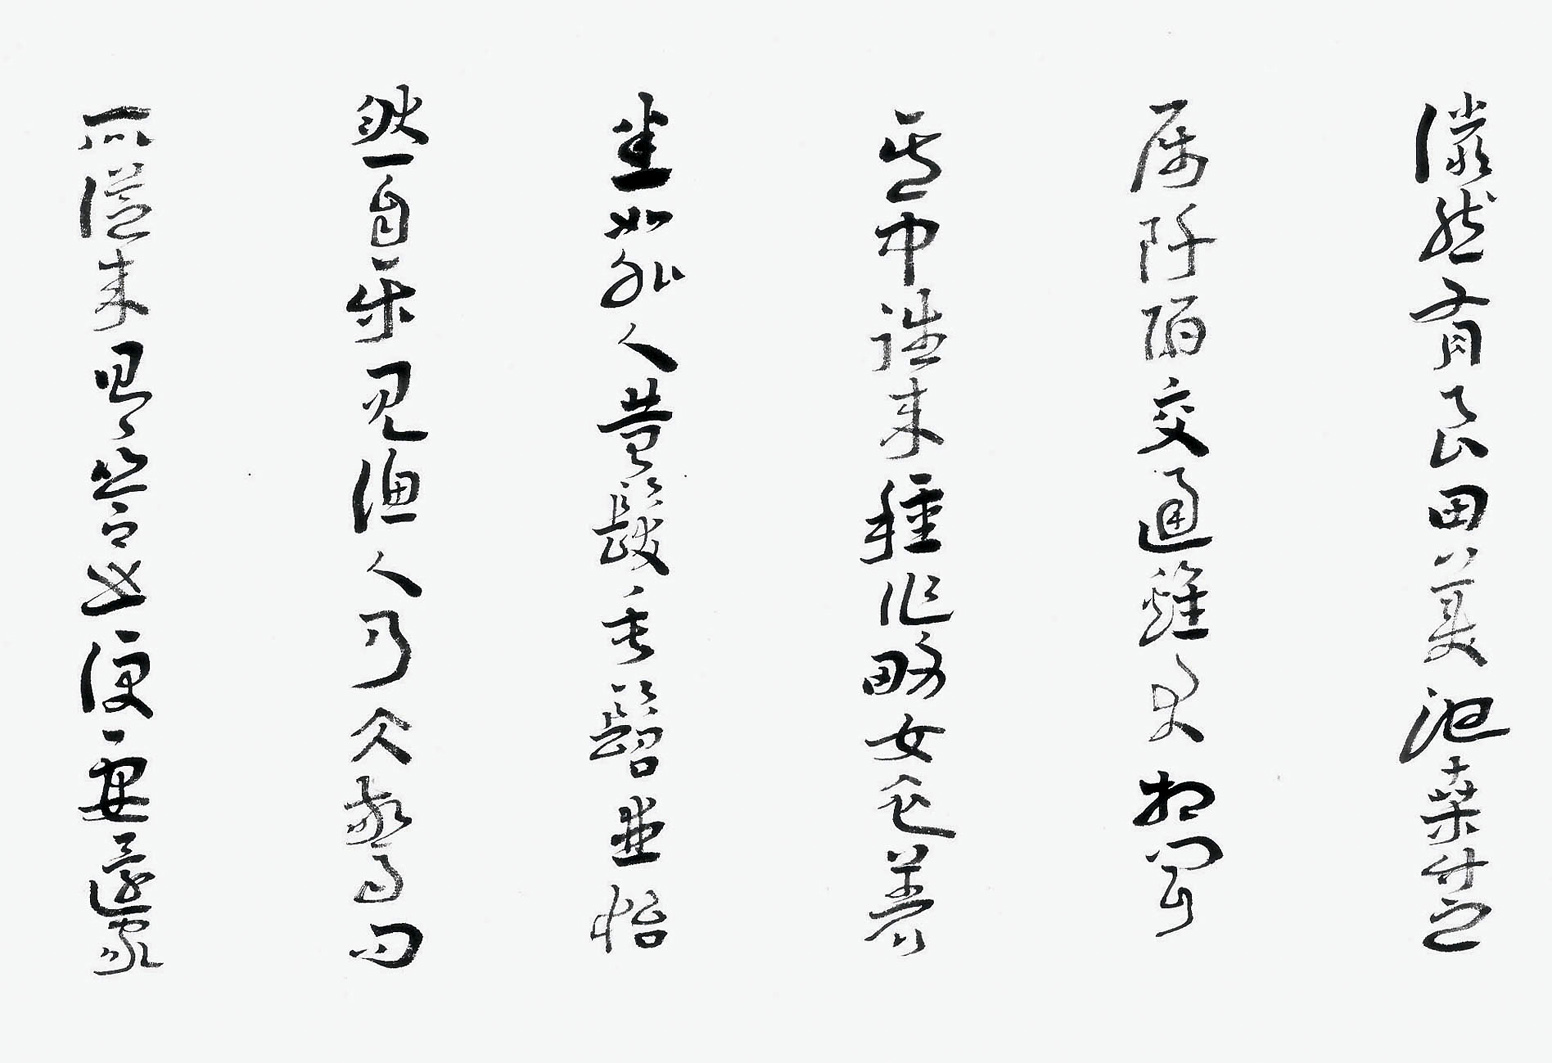 儼然有良田美池桑竹之
属阡陌交通雞犬相聞
其中往來種作男女衣著
悉如外人黃髮垂髫並怡
然自樂見漁人乃大驚問
所從來具答之便要還家